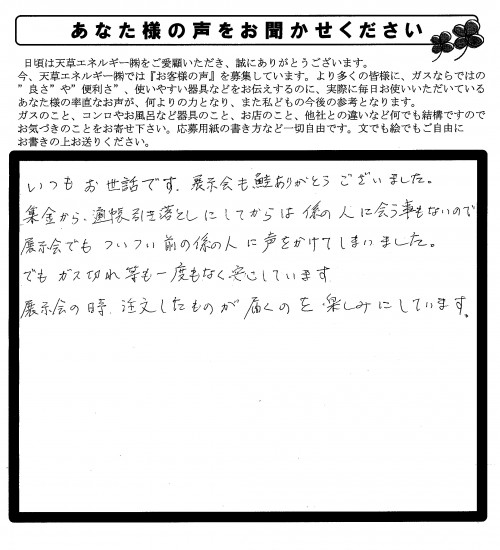 あなた様の声をお聞かせください
日頃は天草エネルギー㈱をご愛顧いただき、誠にありがとうございます。
今、天草エネルギー㈱では『お客様の声』を募集しています。より多くの皆様に、ガスならではの
”良さ”や”便利さ”、使いやすい器具などをお伝えするのに、実際に毎日お使いいただいている
あなた様の率直なお声が、何よりの力となり、また私どもの今後の参考となります。
ガスのこと、コンロやお風呂など器具のこと、お店のこと、他社との違いなど何でも結構ですので
お気づきのことをお寄せ下さい。応募用紙の書き方など一切自由です。文でも絵でもご自由に
お書きの上お送りください。
いつもお世話です。展示会も鮭ありがとうございました。
集金から、通帳引き落としにしてからは係の人に会う事もないので
展示会でもついつい前の係の人に声をかけてしまいました。
でもガス切れ等も一度もなく安心しています
展示会の時、注文したものが届くのを楽しみにしています。